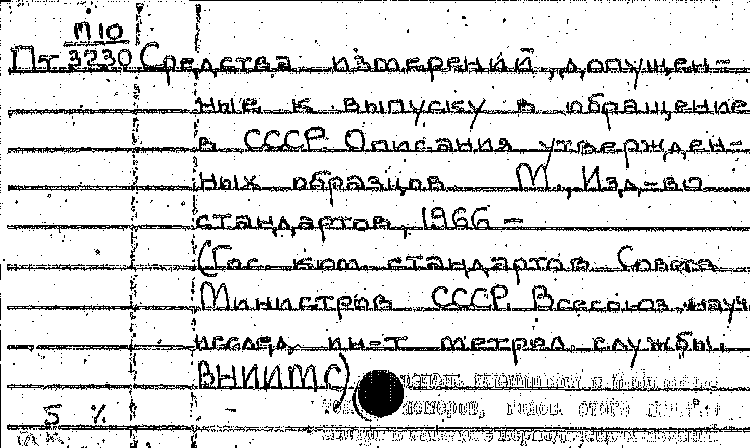 П10
Пт 3230 Средства измерений, допущен-
ные к выпуску в обращение
в СССР. Описания утвержден-
ных образцов. М., Изд-во
стандартов, 1966 –
(Гос. ком. стандартов Совета
Министров СССР. Всесоюз. науч.
исслед. ин-т метрол. службы.
ВНИИМС)
5 %